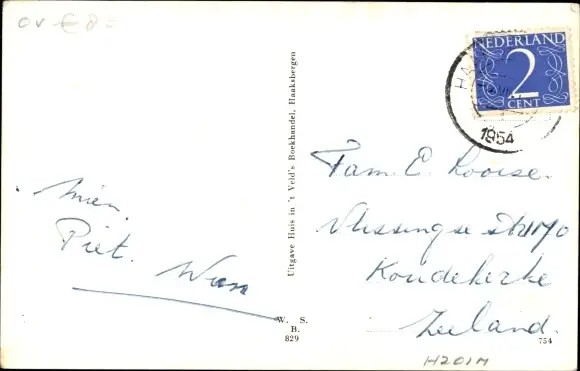 OV € 8=
NEDERLAND
2
CENT
HA
1954
Uitgave Huis in 't Veld's Boekhandel, Haaksbergen
Fam. E. Loorse.
Vlissingse
Koudekerke
Zeeland.
Mien.
Piet.
Wim
W. S.
B.
829
754
H201M